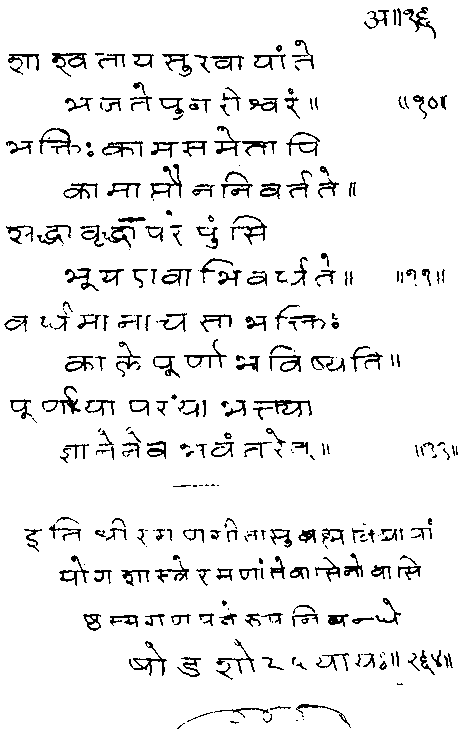 अ॥१६
शाश्वताय सुखायांते
भजते पुनरीश्वरं॥ ॥१०॥
भक्तिः कामसमेतापि
कामाप्तौ न निवर्तते॥
श्रद्धावृद्धा परं पुंसि
भूय एवाभिवर्धते॥ ॥११॥
वर्धमाना च सा भक्तिः
काले पूर्णा भविष्यति॥
पूर्णया परया भक्त्या
ज्ञानेनेव भवं तरेत्॥ ॥१२॥
इति श्रीरमणगीतासु ब्रह्मविद्यायां
योगशास्त्रे रमणांतेवासिनो वासि
ष्ठस्य गणपतेरुपनिबन्धे
षोडशोऽध्यायः॥ २६४॥